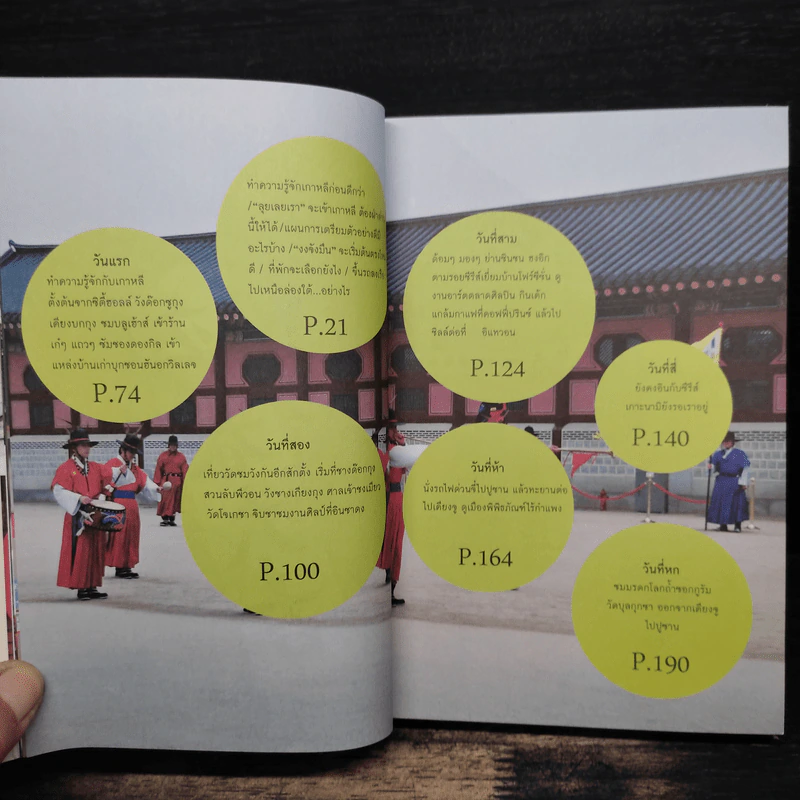 ทำความรู้จักเกาหลีก่อนดีกว่า
/"ลุยเลยเรา" จะเข้าเกาหลี ต้องผ่าน
นี้ให้ได้ /แผนการเตรียมตัวอย่างดีมี
อะไรบ้าง /"งงจังมึน" จะเริ่มต้นตรงไหน
ดี / ที่พักจะเลือกยังไง / ขึ้นรถลงเรือ
ไปเหนือล่องใต้...อย่างไร
P.21
วันแรก
ทำความรู้จักกับเกาหลี
ตั้งต้นจากซิตี้ฮอลล์ วังด๊อกซูกุง
เคียงบกกุง ชมบลูเฮ้าส์ เข้าร้าน
เก๋ๆ แถวๆ ซัมชองดองกิล เข้า
แหล่งบ้านเก่าบุกชอนฮันอกวิลเลจ
P.74
วันที่สอง
เที่ยววัดชมวังกันอีกสักตั้ง เริ่มที่ชางด๊อกกุง
สวนลับพีวอน วังชางเกียงกุง ศาลเจ้าชงเมียว
วัดโจเกซา จิบชาชมงานศิลป์ที่อินซาดง
P.100
วันที่สาม
ด้อมๆ มองๆ ย่านชินชน ฮงอิก
ตามรอยซีรีส์เยี่ยมบ้านโฟร์ซีซั่น ดู
งานอาร์ตตลาดศิลปิน กินเค้ก
แกล้มกาแฟที่คอฟฟี่ปรินซ์ แล้วไป
ชิลล์ต่อที่ อิแทวอน
P.124
วันที่สี่
ยังคงอินกับซีรีส์
เกาะนามิยังรอเราอยู่
P.140
วันที่ห้า
นั่งรถไฟด่วนซี่ไปปูซาน แล้วทะยานต่อ
ไปเคียงจู ดูเมืองพิพิธภัณฑ์ไร้กำแพง
P.164
วันที่หก
ชมมรดกโลกถ้ำซอกกูรัม
วัดบุลกุกซา ออกจากเคียงจู
ไปปูซาน
P.190